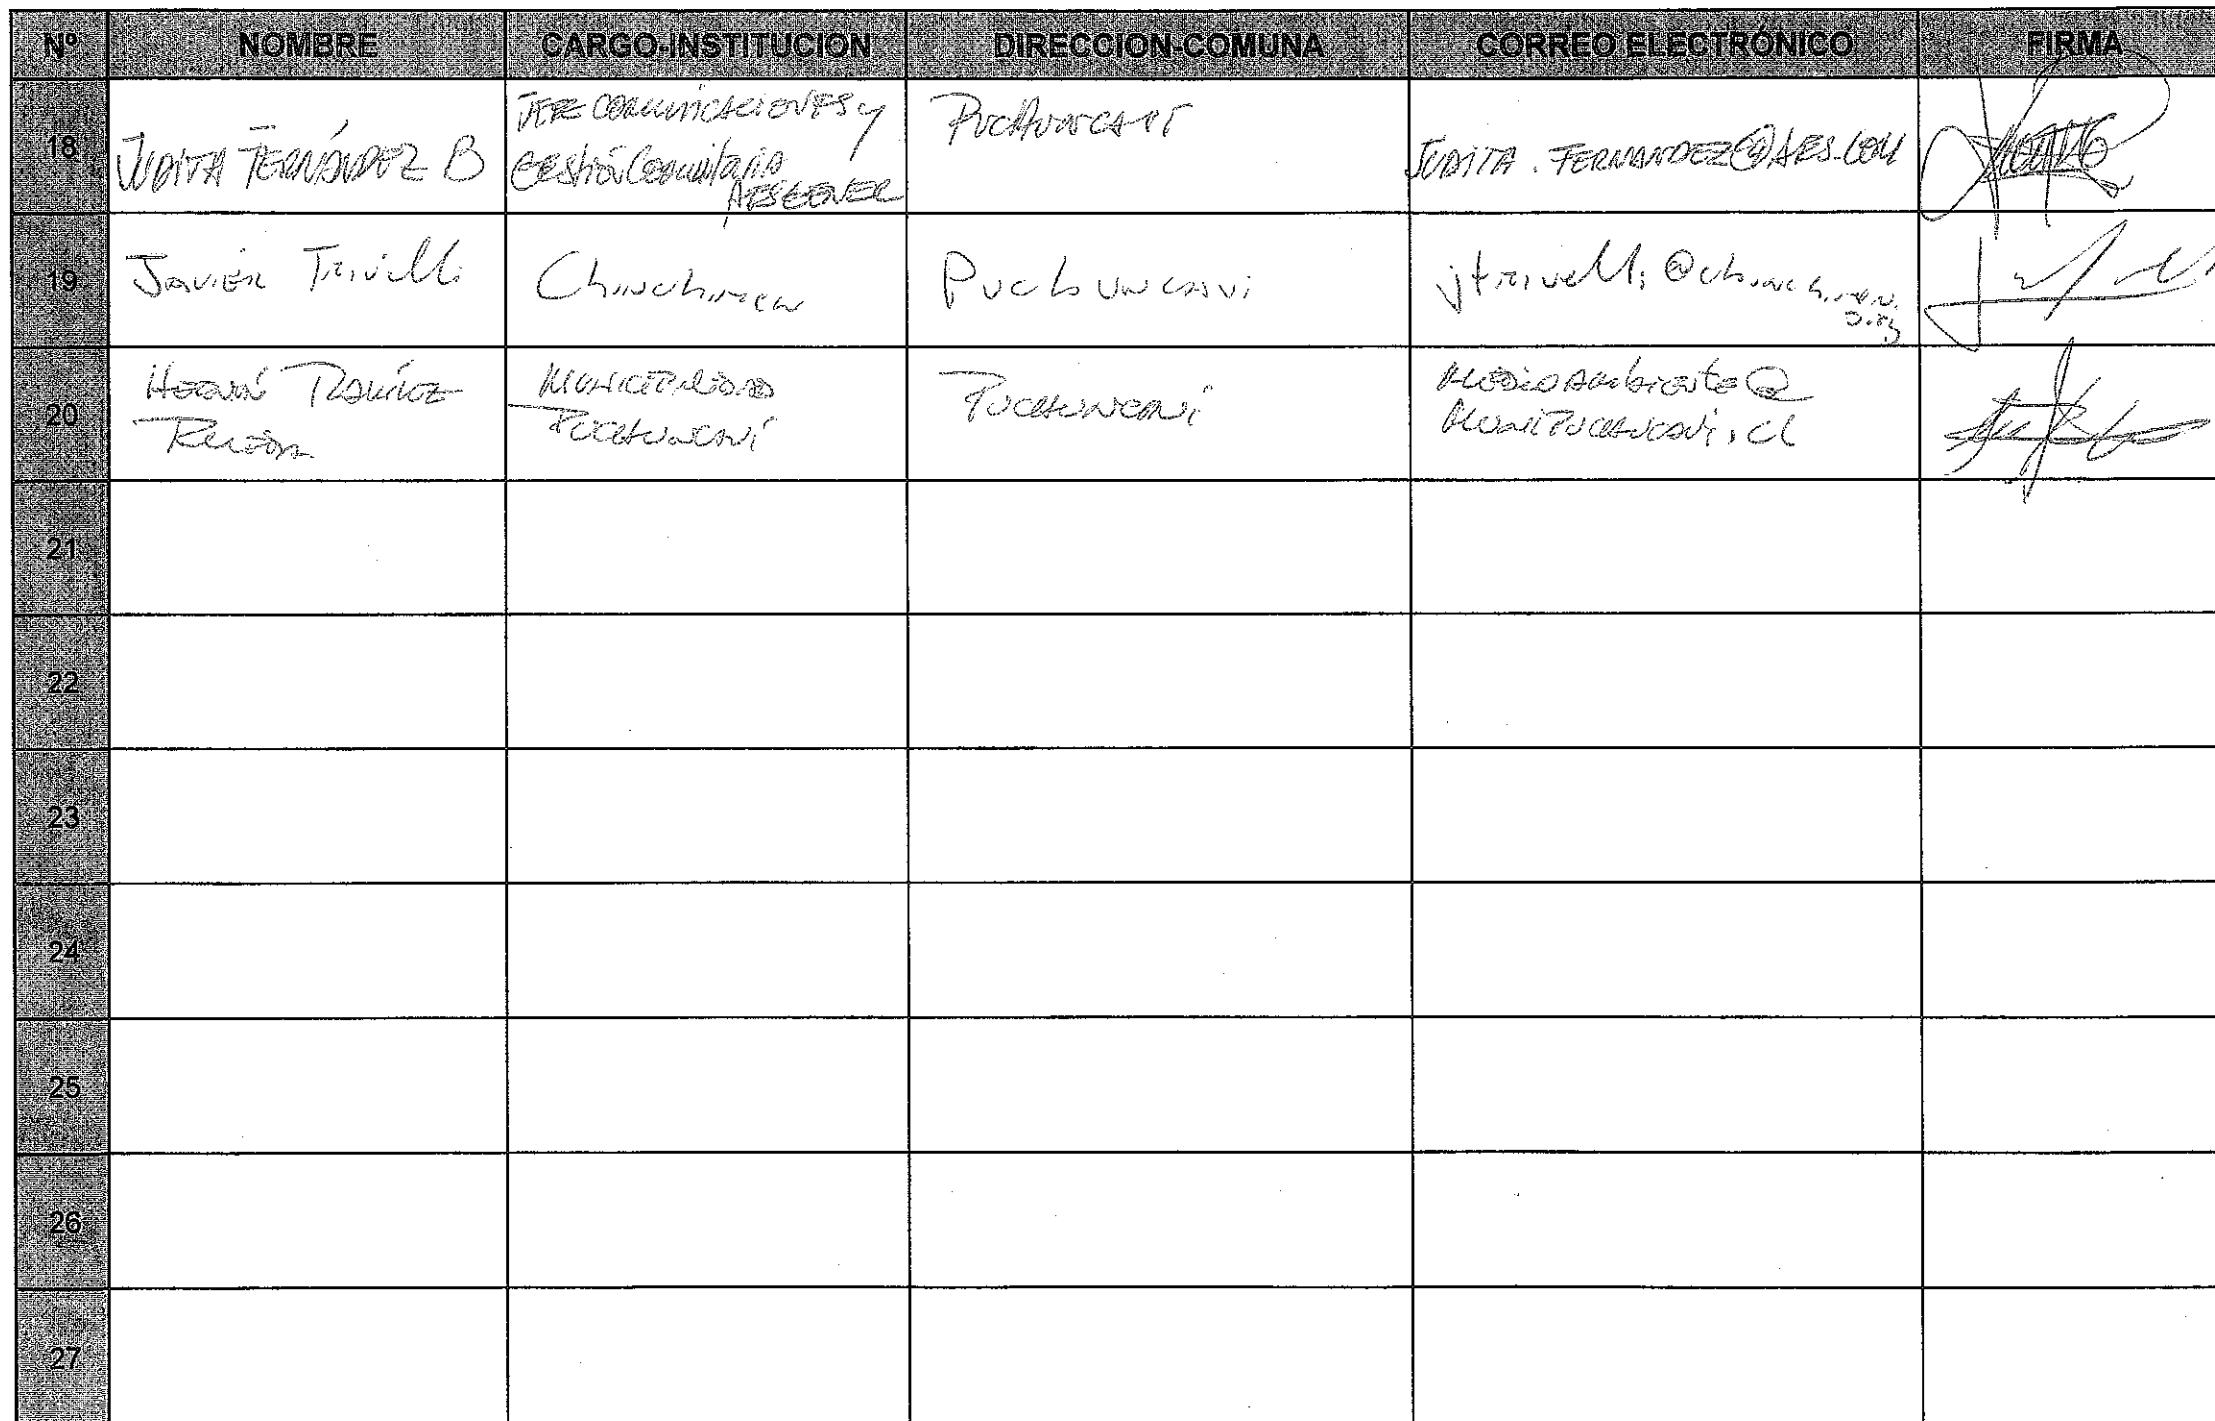 Nº NOMBRE CARGO-INSTITUCION DIRECCION-COMUNA CORREO ELECTRÓNICO FIRMA
18 JUDITA FERNÁNDEZ B JEFE COMUNICACIONES y Gestión Comunitaria AESGENER PUCHUNCAVÍ JUDITA.FERNANDEZ@AES.COM
19 Javier Trivelli Chinchimen Puchuncavi jtrivelli@chinchimen.org
20 HERNÁN RAMÍREZ RUEDA MUNICIPALIDAD PUCHUNCAVÍ PUCHUNCAVÍ MEDIOAMBIENTE@MUNIPUCHUNCAVI.CL
21
22
23
24
25
26
27